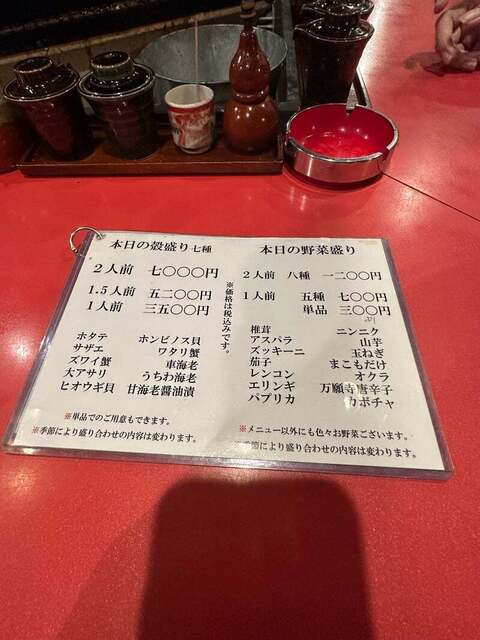 本日の殻盛り七種
2人前 七〇〇〇円
1.5人前 五二〇〇円
1人前 三五〇〇円
※価格は税込みです。
ホタテ ホンビノス貝
サザエ ワタリ蟹
ズワイ蟹 車海老
大アサリ うちわ海老
ヒオウギ貝 甘海老醤油漬
※単品でのご用意もできます。
※季節により盛り合わせの内容は変わります。
本日の野菜盛り
2人前 八種 一二〇〇円
1人前 五種 七〇〇円
単品 三〇〇円
椎茸 ニンニク
アスパラ 山芋
ズッキーニ 玉ねぎ
茄子 まこもだけ
レンコン オクラ
エリンギ 万願寺唐辛子
パプリカ カボチャ
※メニュー以外にも色々お野菜ございます。
※季節により盛り合わせの内容は変わります。